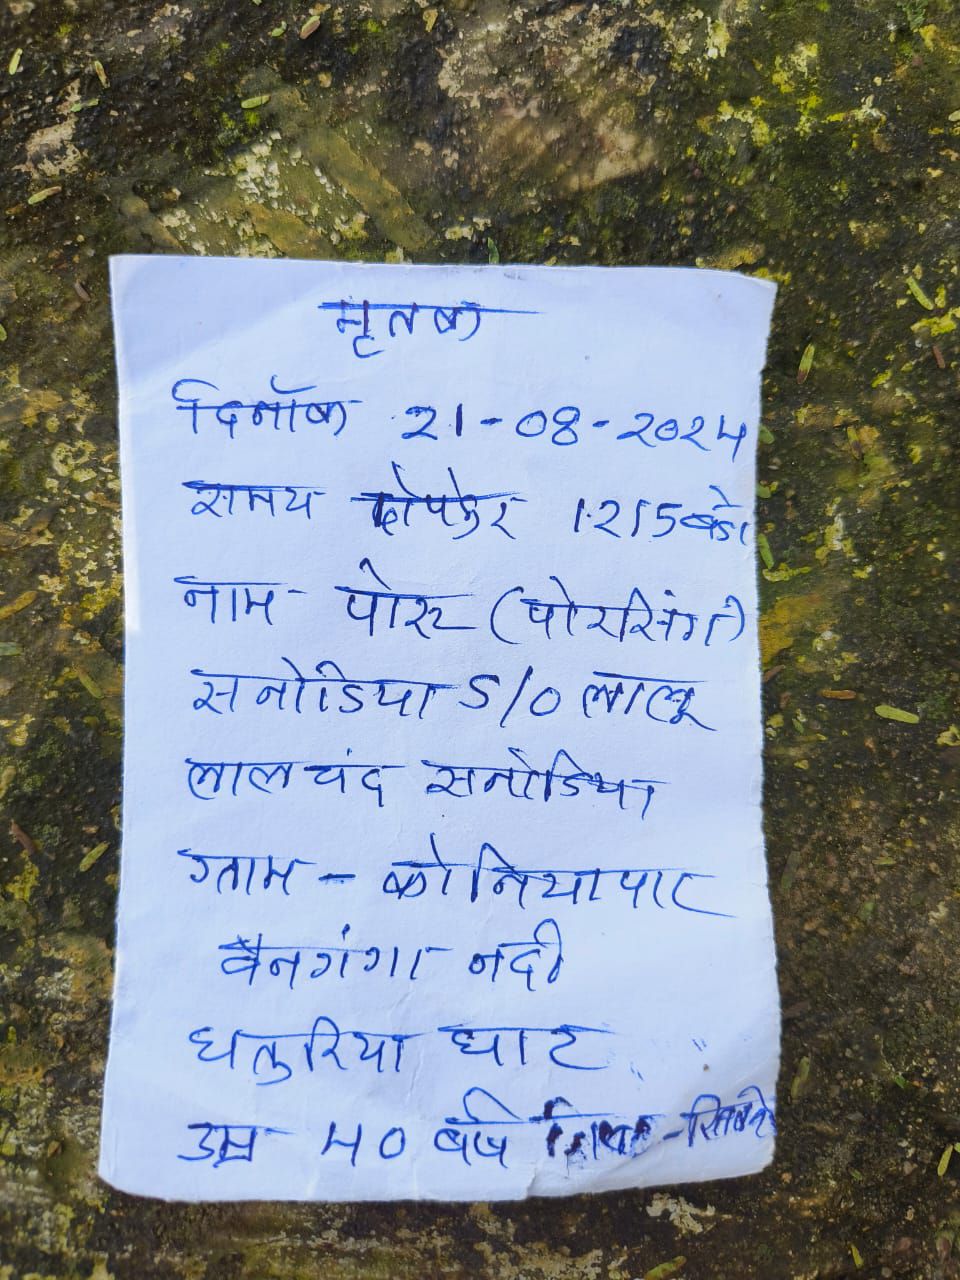 मृतक
दिनाँक 21-08-2024
समय दोपहर 1.215 बजे
नाम - पोरु (पोरसिंग)
सनोडिया S/O लालू
लालचंद सनोडिया
ग्राम - कोनियापार
वैनगंगा नदी
धतुरिया घाट
उम्र 40 वर्ष